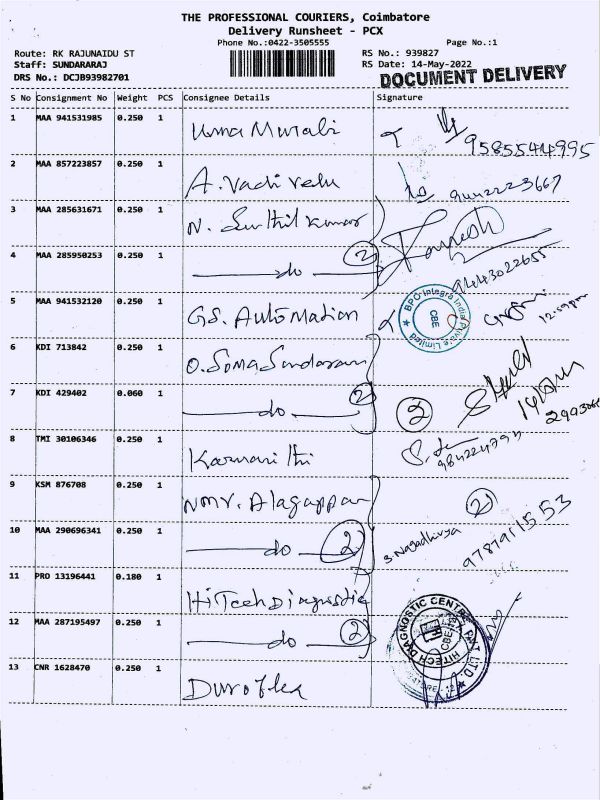 THE PROFESSIONAL COURIERS, Coimbatore
Delivery Runsheet - PCX
Phone No.:0422-3505555
Page No.:1
Route: RK RAJUNAIDU ST
RS No.: 939827
Staff: SUNDARARAJ
RS Date: 14-May-2022
DRS No.: DCJB93982701
DOCUMENT DELIVERY
S No Consignment No Weight PCS Consignee Details Signature
1 MAA 941531985 0.250 1 Uma Murali
9585544995
2 MAA 857223857 0.250 1 A. Vadivelu
9442223667
3 MAA 285631671 0.250 1 N. Senthil Kumar
4 MAA 285950253 0.250 1 do 2
9443022655
5 MAA 941532120 0.250 1 GS. Automation
BPO Integra India Private Limited
CBE
12.59pm
6 KDI 713842 0.250 1 O. Soma Sundaram
7 KDI 429402 0.060 1 do 2
2
8 TMI 30106346 0.250 1
9842247194
9 KSM 876708 0.250 1 NMR. Alagappan
2
10 MAA 290696341 0.250 1 do 2
9787911553
11 PRO 13196441 0.180 1 HiTech Diagnostic
12 MAA 287195497 0.250 1 do 2
HITECH DIAGNOSTIC CENTRE PVT LTD.
13 CNR 1628470 0.250 1 Duroflex